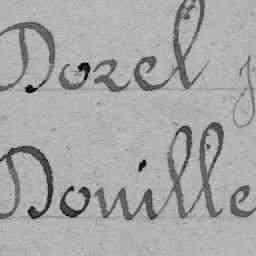 Dozel
Douille